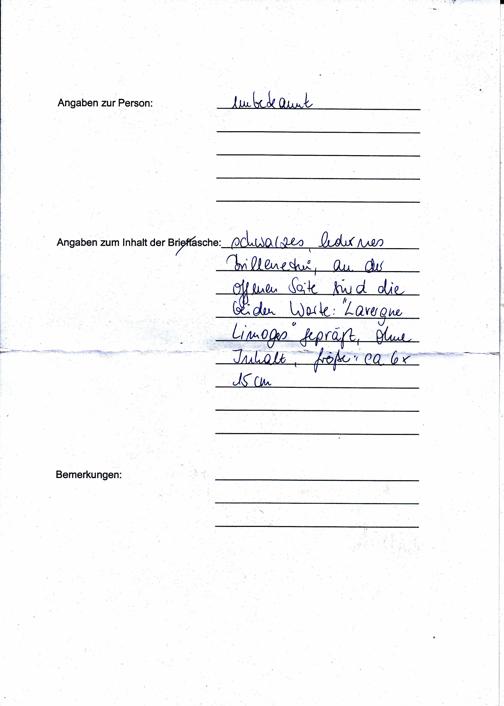 Angaben zur Person: unbekannt
Angaben zum Inhalt der Brieftasche: schwarzes, ledernes
Brillenetui, an der
offenen Seite sind die
beiden Worte: "Lavergne
Limoges" geprägt, ohne
Inhalt, Größe: ca. 6 x
15 cm
Bemerkungen: